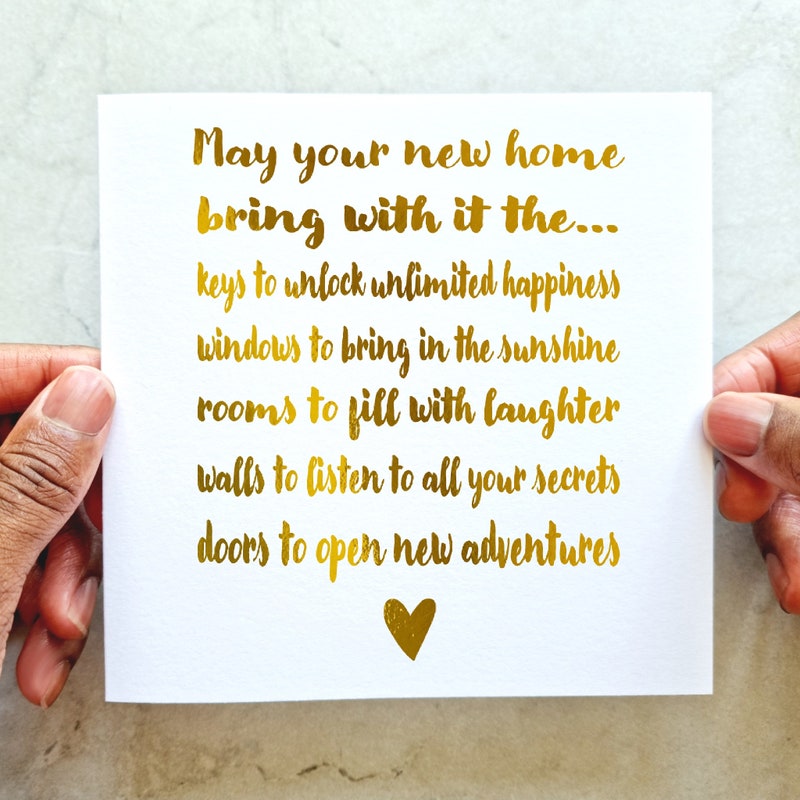 May your new home
bring with it the...
keys to unlock unlimited happiness
windows to bring in the sunshine
rooms to fill with laughter
walls to listen to all your secrets
doors to open new adventures